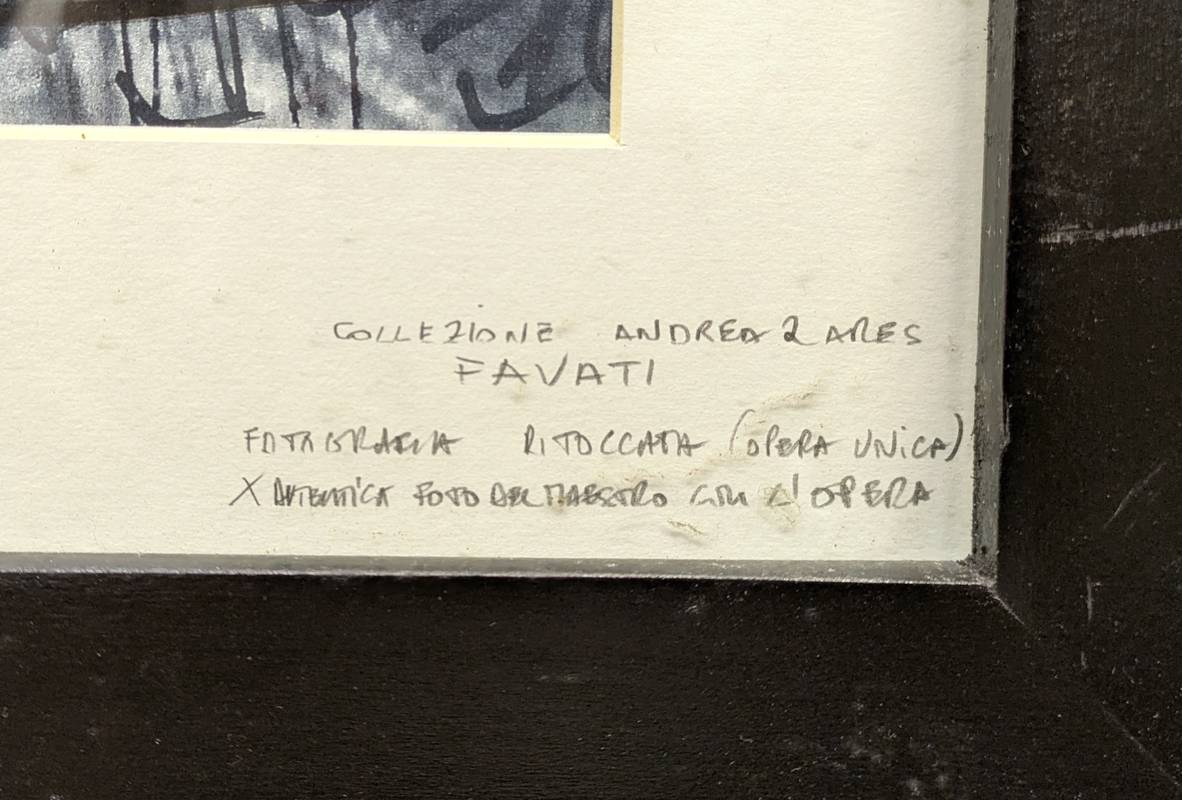 COLLEZIONE ANDREA & ARES
FAVATI
FOTOGRAFIA RITOCCATA (OPERA UNICA)
X AUTENTICA FOTO DEL MAESTRO CON L'OPERA